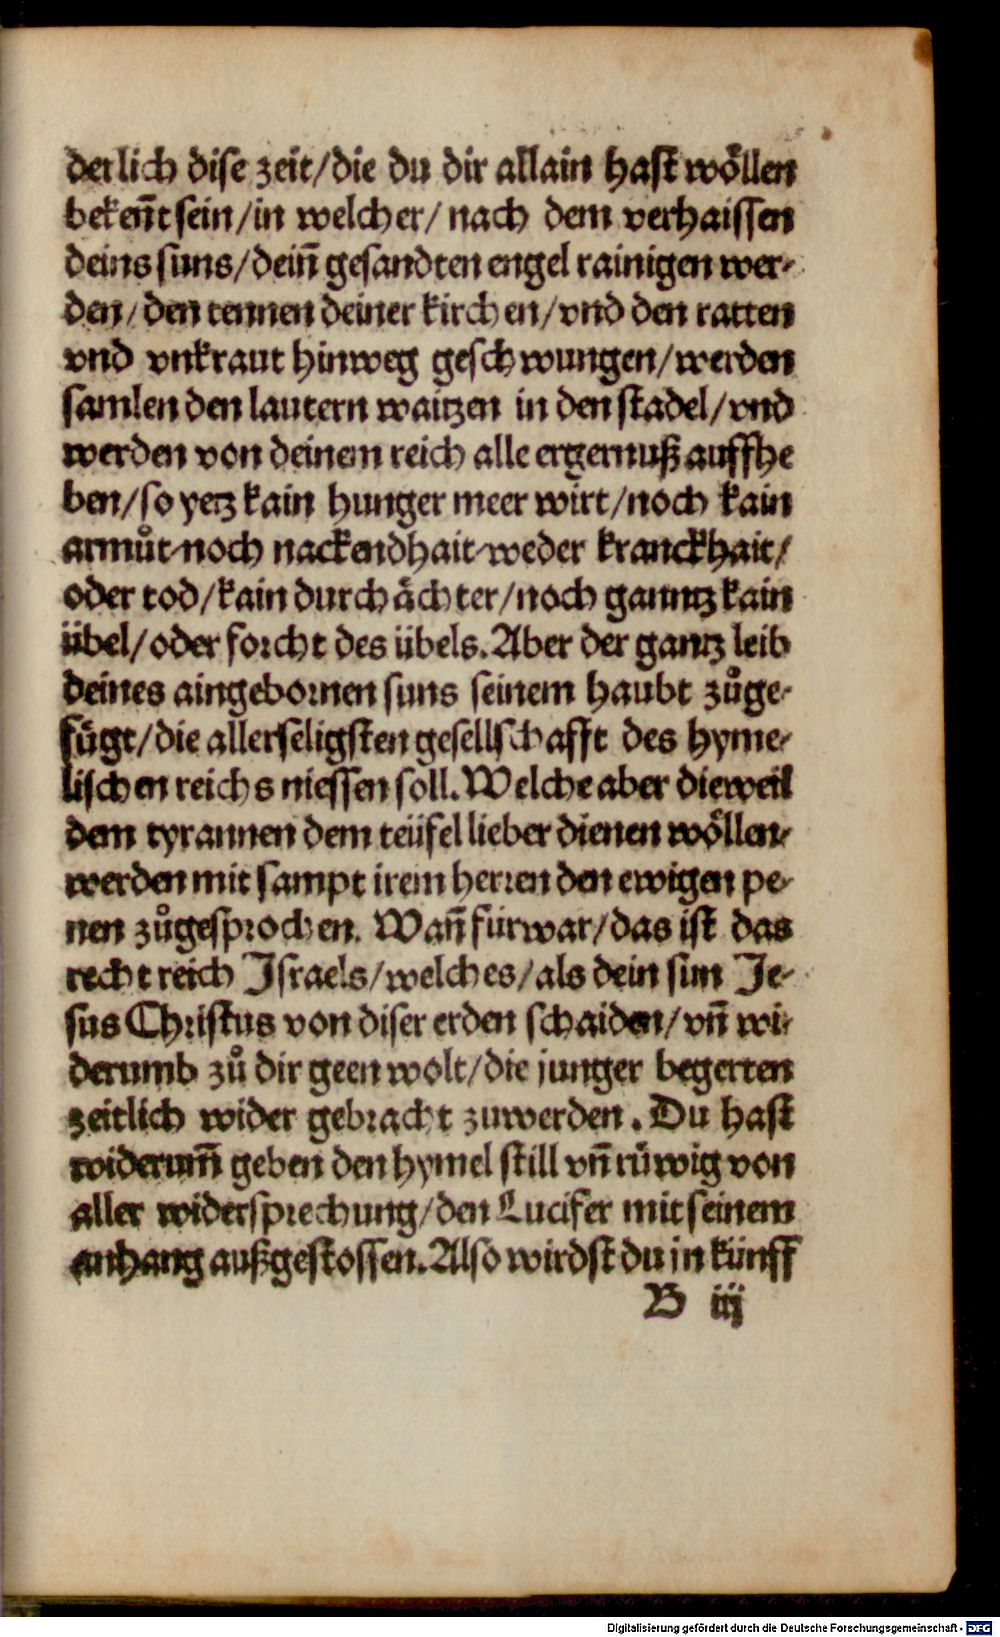 derlich dise zeit/die du dir allain hast wöllen
bekeñt sein/in welcher/ nach dem verhaissen
deins suns/deiñ gesandten engel rainigen wer-
den/den tennen deiner kirchen/vnd den ratten
vnd vnkraut hinweg geschwungen/werden
samlen den lautern waitzen in den stadel/vnd
werden von deinem reich alle ergernuß auffhe
ben/so yetz kain hunger meer wirt/noch kain
armůt-noch nackendhait-weder kranckhait/
oder tod/kain durchächter/noch ganntz kain
übel/oder forcht des übels. Aber der gantz leib
deines aingebornen suns seinem haubt zůge-
fügt/die allerseligsten gesellschafft des hyme-
lischen reichs niessen soll. Welche aber dieweil
dem tyrannen dem teüfel lieber dienen wöllen-
werden mit sampt irem herren den ewigen pe-
nen zůgesprochen. Wañ fürwar/das ist das
recht reich Israels/welches/als dein sun Je-
sus Christus von diser erden schaiden/vñ wi-
derumb zů dir geen wolt/die junger begerten
zeitlich wider gebracht zuwerden. Du hast
widerum̃ geben den hymel still vñ růwig von
aller widersprechung/den Lucifer mit seinem
anhang außgestossen. Also wirdst du in künff
B iij
Digitalisierung gefördert durch die Deutsche Forschungsgemeinschaft - DFG